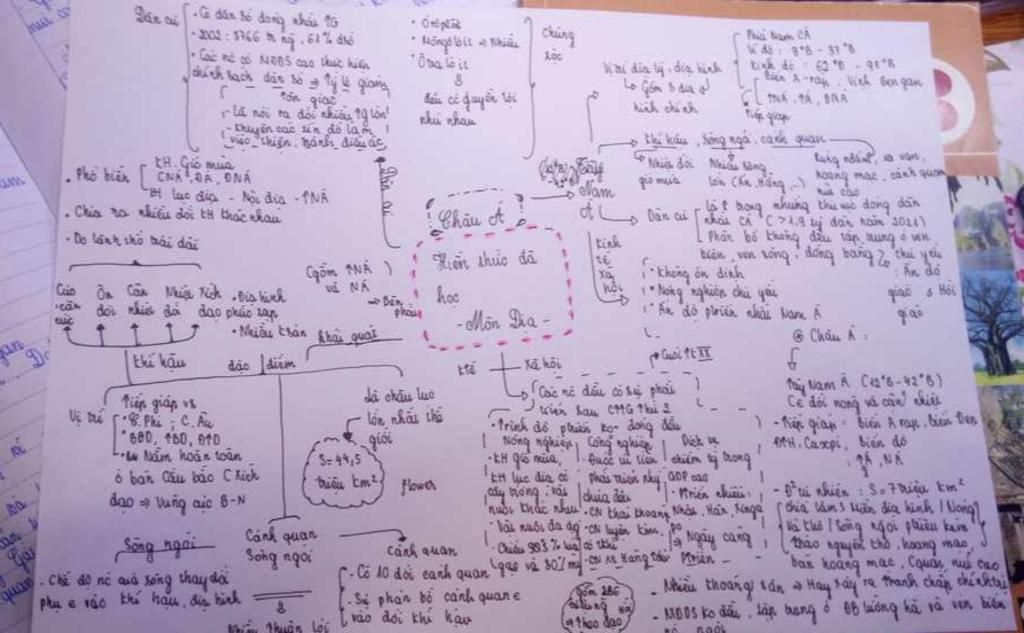 Dân cư
• Có dân số đông nhất TG
• 2002: 3766 tr ng, 61% dsố
• Các nc có MĐDS cao thực hiện
chính sách dân số ⇒ Tỷ lệ giảm
Tôn giáo
- là nơi ra đời nhiều tg lớn
- khuyên các tín đồ làm
việc thiện, tránh điều ác
• Ơropeoit
• Môngôlôit ⇒ Nhiều
• Ôxtralôit
đều có quyền lợi
như nhau
Chủng
tộc
• Phổ biến
KH. Gió mùa
ĐNÁ
KH lục địa - Nội địa - TNÁ
• Chia ra nhiều đới KH khác nhau
• Do lãnh thổ trải dài
Cực
cận
cực
Ôn
đới
Cận
nhiệt
Nhiệt
đới
Xích
đạo
khí hậu
(gồm TNÁ
và NÁ
)
• Địa hình
phức tạp
• Nhiều k.sản
khái quát
đặc điểm
Châu Á
Kiến thức đã
học
- Môn Địa -
Dân cư
Nam
Á
Vị trí địa lý, địa hình
↳ Gồm 3 địa
hình chính
Phía Nam CÁ
Vĩ độ: 9°B - 37°B
Kinh độ: 62°Đ - 98°Đ
Biển A-rap, Vịnh Bengan
TNÁ, TÁ, ĐNÁ
Tiếp giáp
Khí hậu, sông ngòi, cảnh quan
Nhiệt đới
gió mùa
Nhiều sông
lớn (Ấn, Hằng,..)
Rừng nđẩm, xa van,
hoang mạc, cảnh quan
núi cao
Dân cư
là 1 trong những khu vực đông dân
nhất CÁ (>1,9 tỷ dân năm 2021)
Phân bố không đều tập trung ở ven
biển, ven sông, đồng bằng
Chủ yếu
: Ấn độ
giáo & Hồi
giáo
kinh
tế
xã
hội
• Không ổn định
• Nông nghiệp chủ yếu
• Ấn độ ptriển nhất Nam Á
Vị trí
Tiếp giáp vs
• C.Phi; C.Âu
• BBD, TBD, ĐTD
• Nằm hoàn toàn
ở bán cầu bắc
đạo ⇒ vùng cực B-N
là châu lục
lớn nhất thế
giới
S = 44,5
triệu km²
flower
Cảnh quan
Sông ngòi
Sông ngòi
• Chế độ nc của sông thay đổi
phụ ∈ vào khí hậu, địa hình
Nhiều thuận lợi
Cảnh quan
• Có 10 đới cảnh quan
• Sự phân bố cảnh quan ∈
vào đới khí hậu
k.tế
Xã hội
Cuối TK XX
• Các nc đều có sự phát
triển sau CTTG thứ 2
• Trình độ ptriển ko đồng đều
Nông nghiệp
• KH gió mùa,
KH lục địa có
cây trồng, vật
nuôi khác nhau
• Vật nuôi đa dạng
• Chiếm 93% lúa
gạo và 30%
Công nghiệp
• Được ưu tiên
phát triển nhg
chưa đều
• CN khai khoáng
• CN luyện kim,
cơ khí
• CN sx hàng tdùng
Dịch vụ
chiếm tỷ trọng
GDP cao
• Ptriển nhiều:
Nhật, Hàn, Singa
po
⇒ Ngày càng
ptriển
⊛ Châu Á:
Tây Nam Á (12°B-42°B)
Có đới nóng và cận nhiệt
- Tiếp giáp: biển A rap, Biển Đen
ĐTH, Caxpi, biển đỏ
: TÁ, NÁ
- Đ² tự nhiên: S = 7 triệu km²
chia làm 3 miền địa hình / Nóng
và khô / Sông ngòi phần kém
thảo nguyên khô, hoang mạc,
bán hoang mạc, Cquan núi cao
- Nhiều khoáng sản ⇒ Hay xảy ra tranh chấp chính trị
- MĐDS ko đều, tập trung ở ĐB Lưỡng hà và ven biển